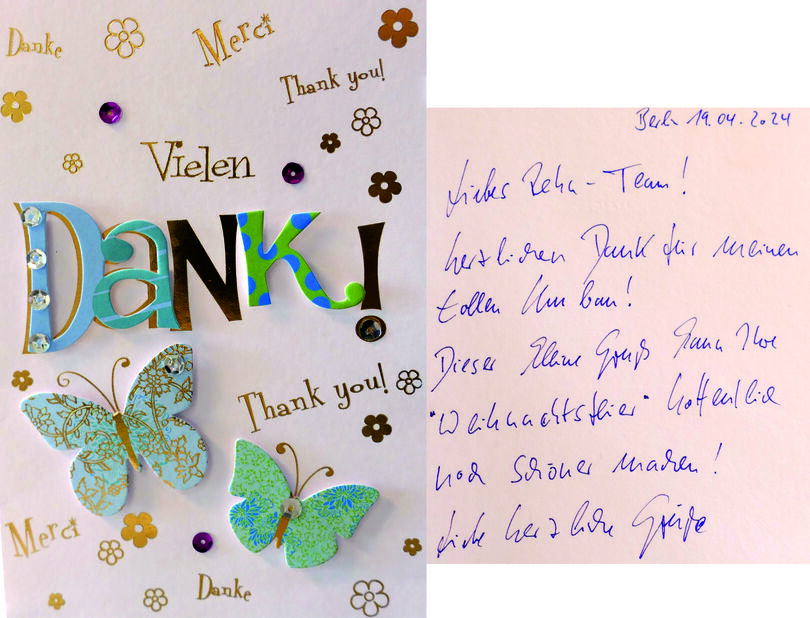 Danke
Merci
Thank you!
Vielen
DANK!
Thank you!
Merci
Danke
Berlin 19.04.2024
Liebes Reha-Team!
herzlichen Dank für meinen
tollen Umbau!
Dieser kleine Gruß kann Ihre
"Weihnachtsfeier" hoffentlich
noch schöner machen!
Liebe herzliche Grüße